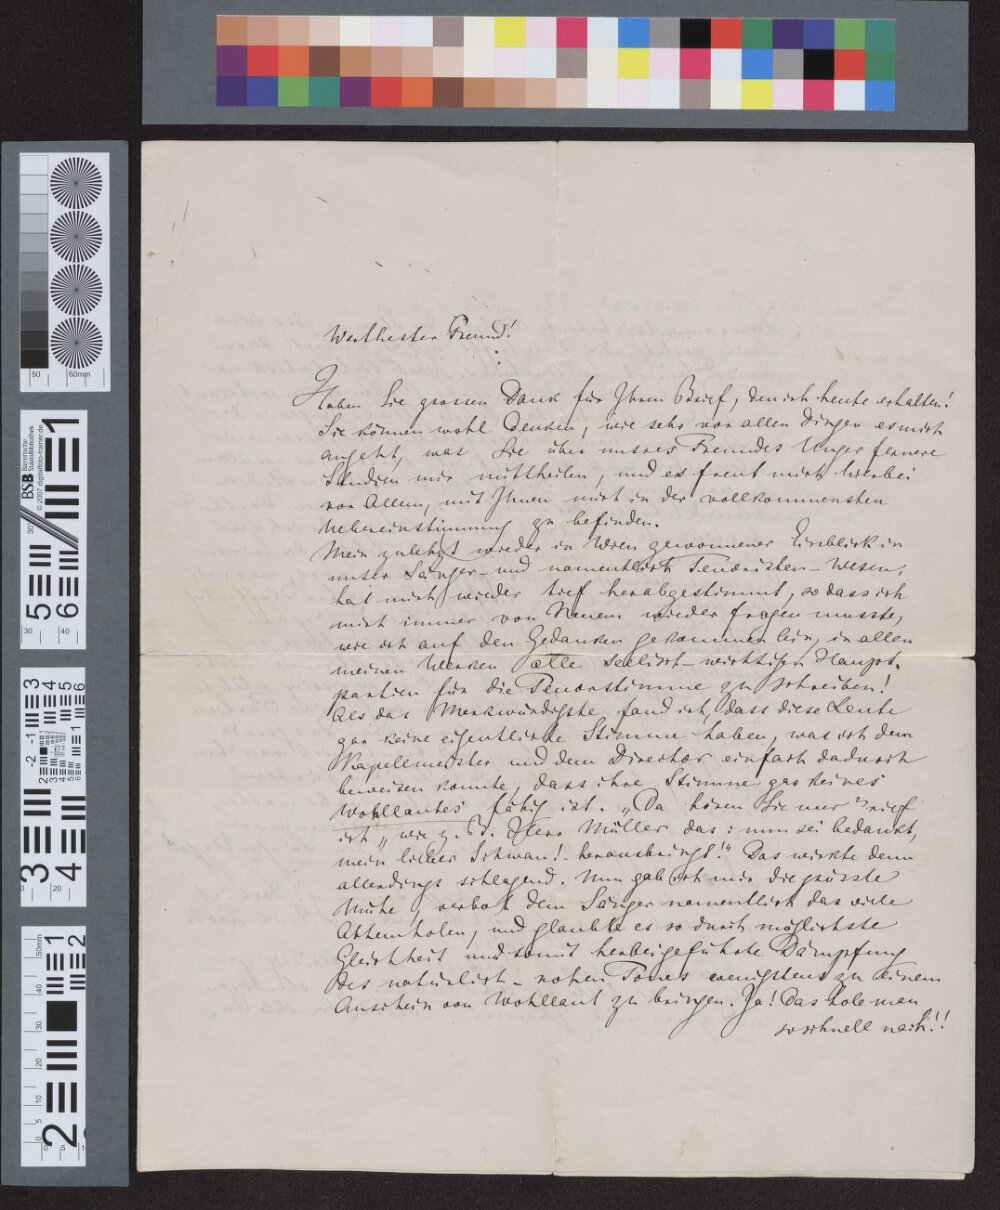 Werthester Freund!
Haben Sie grossen Dank für Ihren Brief, den ich heute erhalten!
Sie können wohl denken, wie sehr vor allen Dingen es mich
angeht, was Sie über unsres Freundes Unger fernere
Studien mir mittheilen, und es freut mich hierbei
vor Allem, mit Ihnen mich in der vollkommensten
Uebereinstimmung zu befinden.
Mein zuletzt wieder in Wien gewonnener Einblick in
unser Sänger- und namentlich Tenoristen-Wesen,
hat mich wieder tief herabgestimmt, so dass ich
mich immer von Neuem wieder fragen musste,
wie ich auf den Gedanken gekommen bin, in allen
meinen Werken alle seelisch-wichtigen Haupt-
partien für die Tenorstimme zu schreiben!
Als das Merkwürdigste fand ich, dass diese Leute
gar keine eigentliche Stimme haben, was ich dem
Kapellmeister und dem Director einfach dadurch
beweisen konnte, dass ihre Stimme gar keines
Wohllautes fähig ist. „Da hören Sie nur" rief
ich „wie z. B. Herr Müller das: nun sei bedankt,
mein lieber Schwan! - herausbringt!" Das wirkte denn
allerdings schlagend. Nun gab ich mir die grösste
Mühe, verbot dem Sänger namentlich das viele
Athemholen, und glaubte es so durch möglichste
Gleichheit und somit herbeigeführte Dämpfung
des natürlich-rohen Tones wenigstens zu einem
Anschein von Wohllaut zu bringen. Ja! Das hole man
so schnell nach!!
50 60mm
BSB Bayerische StaatsBibliothek
© 2007 digitalfoto-trainer.de